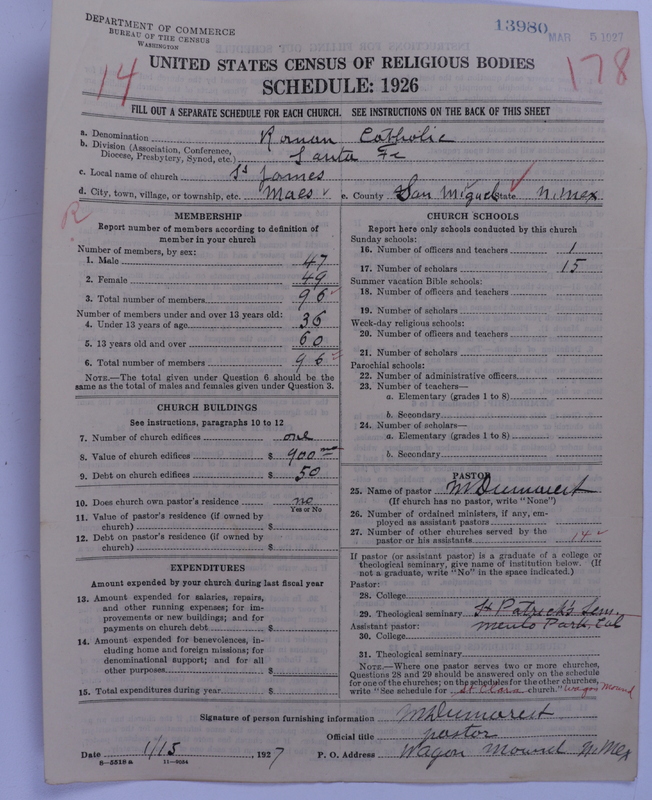 DEPARTMENT OF COMMERCE
BUREAU OF THE CENSUS
WASHINGTON
13980
MAR 5 1927
14
178
UNITED STATES CENSUS OF RELIGIOUS BODIES
SCHEDULE: 1926
FILL OUT A SEPARATE SCHEDULE FOR EACH CHURCH. SEE INSTRUCTIONS ON THE BACK OF THIS SHEET
a. Denomination Roman Catholic
b. Division (Association, Conference, Diocese, Presbytery, Synod, etc.) Santa Fe
c. Local name of church St James
d. City, town, village, or township, etc. Maes e. County San Miguel State N. Mex
R
MEMBERSHIP
Report number of members according to definition of
member in your church
Number of members, by sex:
1. Male 47
2. Female 49
3. Total number of members 96
Number of members under and over 13 years old:
4. Under 13 years of age 36
5. 13 years old and over 60
6. Total number of members 96
NOTE.—The total given under Question 6 should be the
same as the total of males and females given under Question 3.
CHURCH BUILDINGS
See instructions, paragraphs 10 to 12
7. Number of church edifices one
8. Value of church edifices $ 900
9. Debt on church edifices $ 50
10. Does church own pastor's residence no
Yes or No
11. Value of pastor's residence (if owned by
church) $
12. Debt on pastor's residence (if owned by
church) $
EXPENDITURES
Amount expended by your church during last fiscal year
13. Amount expended for salaries, repairs,
and other running expenses; for im-
provements or new buildings; and for
payments on church debt $
14. Amount expended for benevolences, in-
cluding home and foreign missions; for
denominational support; and for all
other purposes $
15. Total expenditures during year $
CHURCH SCHOOLS
Report here only schools conducted by this church
Sunday schools:
16. Number of officers and teachers 1
17. Number of scholars 15
Summer vacation Bible schools:
18. Number of officers and teachers
19. Number of scholars
Week-day religious schools:
20. Number of officers and teachers
21. Number of scholars
Parochial schools:
22. Number of administrative officers
23. Number of teachers—
a. Elementary (grades 1 to 8)
b. Secondary
24. Number of scholars—
a. Elementary (grades 1 to 8)
b. Secondary
PASTOR
25. Name of pastor M Dumarest
(If church has no pastor, write "None")
26. Number of ordained ministers, if any, em-
ployed as assistant pastors
27. Number of other churches served by the
pastor or his assistants 14
If pastor (or assistant pastor) is a graduate of a college or
theological seminary, give name of institution below. (If
not a graduate, write "No" in the space indicated.)
Pastor:
28. College
29. Theological seminary St Patrick's Sem.
Assistant pastor: Menlo Park, Cal
30. College
31. Theological seminary
NOTE.—Where one pastor serves two or more churches,
Questions 28 and 29 should be answered only on the schedule
for one of the churches; on the schedules for the other churches,
write "See schedule for St Clara church." Wagon Mound
Signature of person furnishing information M Dumarest
Official title pastor
Date 1/15 1927 P. O. Address Wagon Mound N. Mex
8—5518 a 11—9064